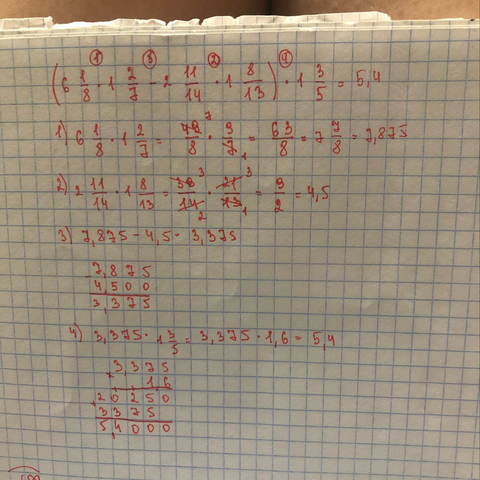 ① ③ ② ④
(6 1/8 · 1 2/7 - 2 11/14 · 1 8/13) · 1 3/5 = 5,4
1) 6 1/8 · 1 2/7 = 49/8 · 9/7 = 63/8 = 7 7/8 = 7,875
2) 2 11/14 · 1 8/13 = 39/14 · 21/13 = 9/2 = 4,5
3) 7,875 - 4,5 - 3,375
- 7,875
4,500
3,375
4) 3,375 · 1 3/5 = 3,375 · 1,6 = 5,4
× 3,375
1,6
+ 20250
3375
5,4000